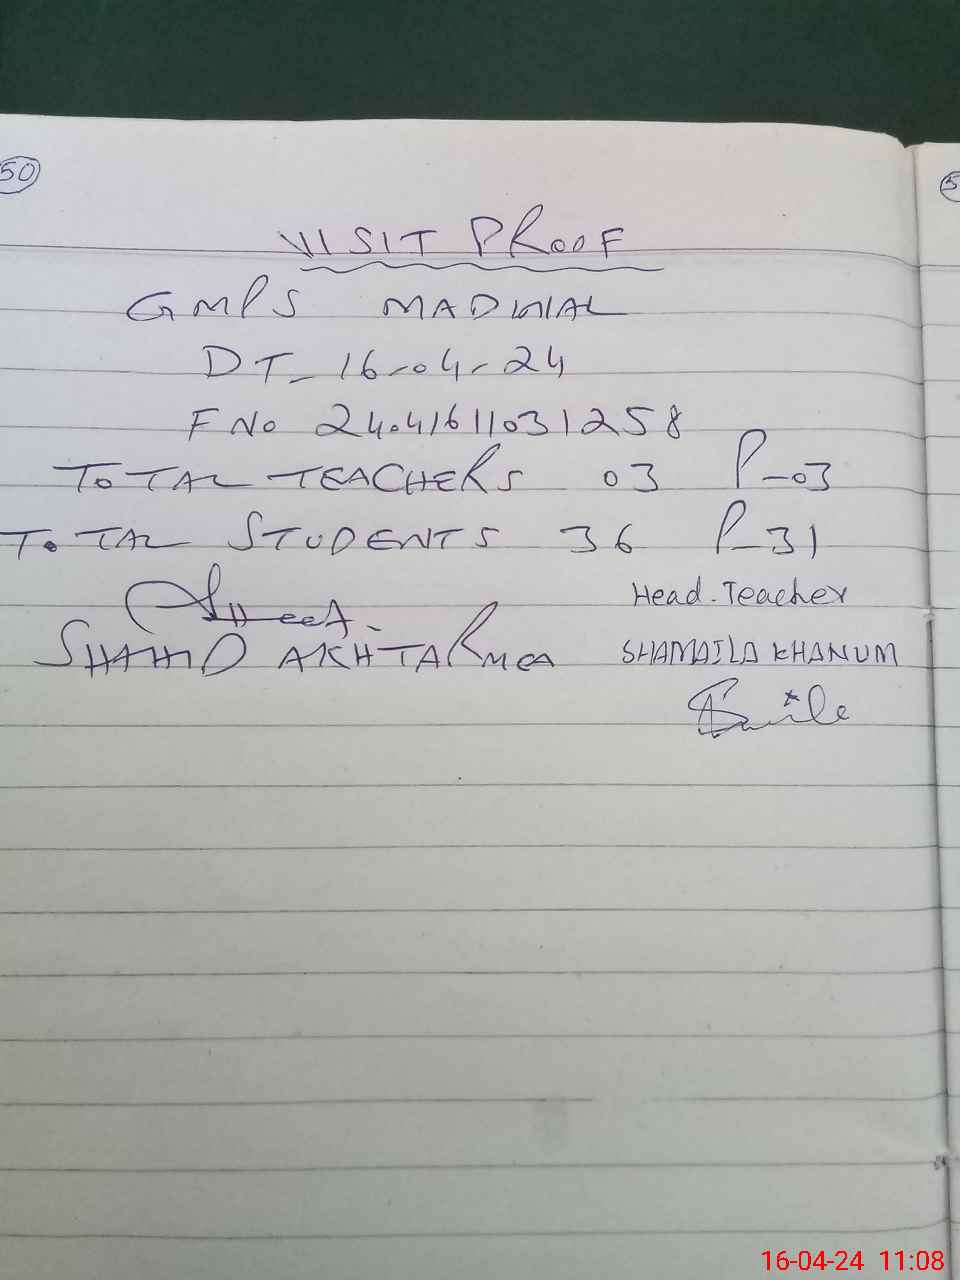 50
5
VISIT PROOF
GMPS MADWAL
DT_ 16-04-24
F No 24041611031258
TOTAL TEACHERS 03 P_03
TOTAL STUDENTS 36 P_31
Head.Teacher
SHAHID AKHTAR MEA SHAMAILA KHANUM
16-04-24 11:08